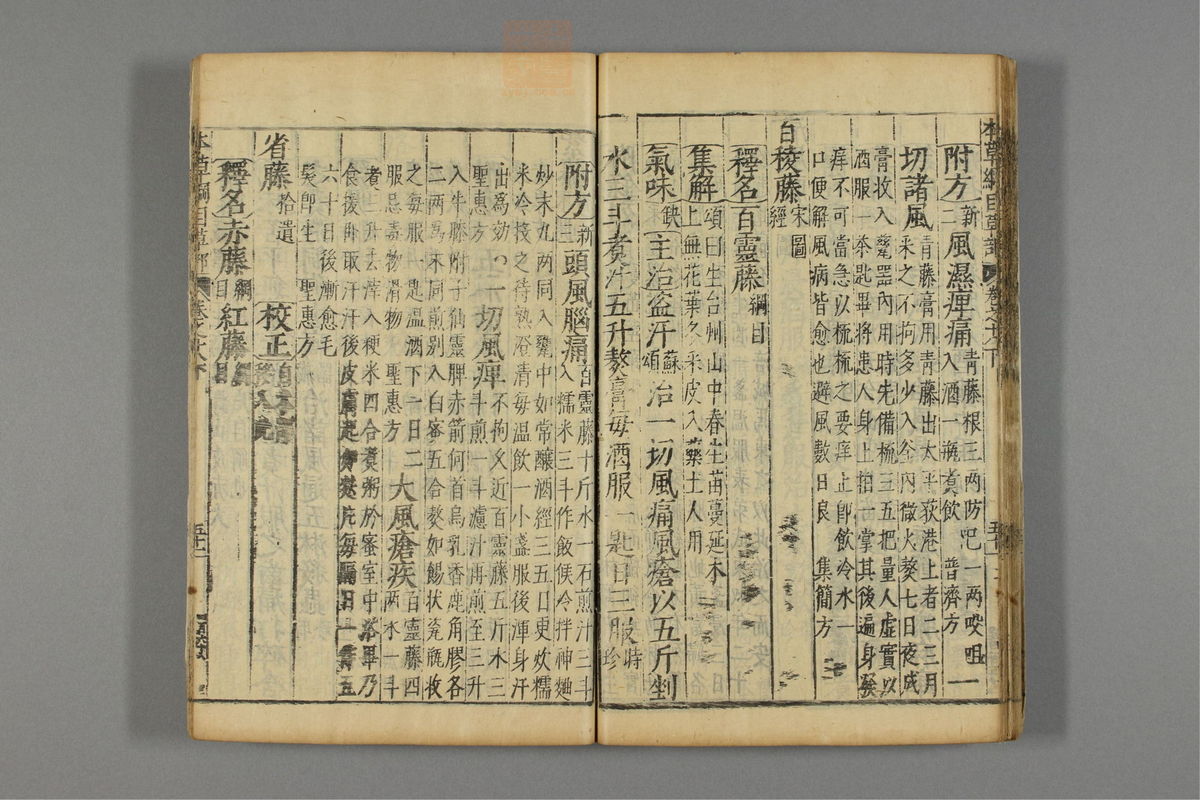 本草綱目草部 卷之十八下 五十一
附方新二風濕痺痛青藤根三兩防己一兩㕮咀入酒一瓶煮飲 普濟方一
切諸風青藤膏用青藤出太平荻港上者二三月采之不拘多少入釜內微火熬七日夜成
膏收入甆器內用時先備梳三五把量人虛實以酒服一茶匙畢將患人身上拍一掌其後遍身發
痒不可當急以梳梳之要痒止卽飲冷水一口便解風病皆愈也避風數日良 集簡方
白稜藤宋圖經
釋名百靈藤綱目
集解頌曰生台州山中春生苗蔓延木上無花葉冬采皮入藥土人用
氣味缺主治盜汗蘇頌治一切風痛風瘡以五斤剉
水三斗煮汁五升熬膏每酒服一匙日三服時珍
附方新三頭風腦痛百靈藤十斤水一石煎汁三斗入糯米三斗作飯候冷拌神麴
炒末九兩同入甕中如常釀酒經三五日更炊糯米冷投之待熟澄清每温飲一小盞服後渾身汗
出爲効 聖惠方 一切風痺不拘久近百靈藤五斤水三斗煎一斗濾汁再煎至三升
入牛膝附子仙靈脾赤箭何首烏乳香鹿角膠各二兩爲末同煎別入白蜜五合熬如餳狀瓷瓶收
之每服一匙温酒下一日二服忌毒物滑物 聖惠方 大風瘡疾百靈藤四兩水一斗
煮三升去滓入粳米四合煮粥於密室中浴畢乃食後再取汗汗後皮膚起如麩片每隔日一作五
六十日後漸愈毛髮卽生 聖惠方
省藤拾遺 校正
釋名赤藤綱目紅藤
本草綱目草部 卷之十八下 五十二